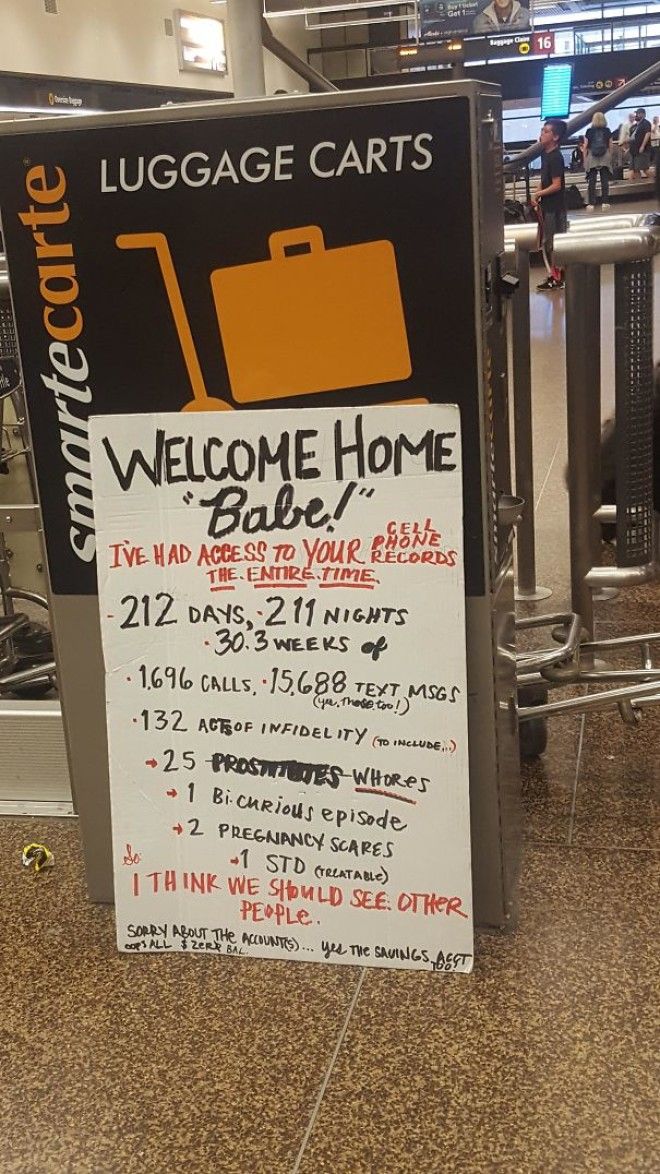 Buy 1 ticket
Get 1
Baggage Claim
16
Oversize Baggage
LUGGAGE CARTS
smartecarte®
WELCOME HOME
"Babe!"
I'VE HAD ACCESS TO YOUR CELL PHONE RECORDS
THE ENTIRE TIME.
- 212 DAYS, · 211 NIGHTS
· 30.3 WEEKS of
· 1,696 CALLS, · 15,688 TEXT MSGS
(yes, those too!)
· 132 ACTS OF INFIDELITY (TO INCLUDE...)
→ 25 PROSTITUTES WHORES
→ 1 Bi-curious episode
→ 2 PREGNANCY SCARES
→ 1 STD (TREATABLE)
So:
I THINK WE SHOULD SEE OTHER
PEOPLE.
SORRY ABOUT THE ACCOUNT(S)... yes THE SAVINGS ACCT
TOO!
OOPS ALL $ ZERO BAL.